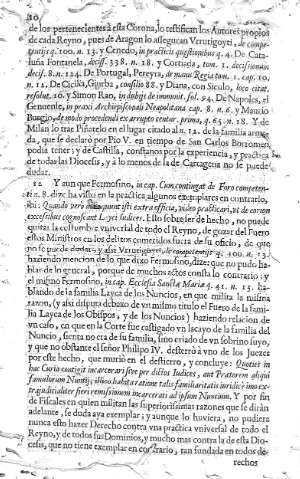 20
de los pertenecientes à esta Corona, lo testifican los Autores propios
de cada Reyno, pues de Aragon lo asseguran Vrrutigoyti, de compe-
tentijs q. 100. n. 13. y Cenedo, in practicis quæstionibus q. 4. De Cata-
luña Fontanela, decis. 338. n. 18. y Cortiada, tom. 1. decisionum
decis. 8. n. 124. De Portugal, Pereyra, de manu Regia tom. 1. cap. 10.
n. 11. De Cicilia, Giurba, consilio 88. y Diana, con Siculo, loco citat.
resolut. 26. y Simon Rao, in dubijs de immunit. fol. 94. De Napoles, el
Genuense, in praxi Archiepiscopali Neapolitana cap. 8. n. 6. y Mourio
Burgio, de modo procedendi ex arrupto centur. prima, q. 65. n. 18. Y de
Milan lo trae Piñatelo en el lugar citado al n. 12. de la familia arma-
da, que se declarò por Pio V. en tiempo de San Carlos Borromeo,
podia tener; y de Castilla, constanos por la experiencia, y practica
de todas las Diocesis, y à lo menos de la de Cartagena no se puede
dudar.
12. Y aun que Fermosino, in cap. Cum contingat de Foro competen-
ti n. 8. dize ha visto en la practica algunos exemplares en contrario,
ibi: Quando vero delinquunt extra officia, video practicari, ut de eorum
excessibus cognoscant Layci Iudices. Esto sobre ser de hecho, no puede
quitar la costumbre vniversal de todo el Reyno, de gozar del Fuero
estos Ministros en los delitos cometidos fuera de su oficio, de que
no se puede dudar; y assi Vrrutigoyti, de competentijs q. 100. n. 13.
haziendo mencion de lo que dixo Fermosino, dize: que no pudo ha-
blar de lo general, porque de muchos actos consta lo contrario: y
el mismo Fermosino, in cap. Ecclesia Sanctæ Mariæ q. 41. n. 15. ha-
blando de la familia Layca de los Nuncios, en que milita la misma
razon, (y assi disputa debaxo de vn mismo titulo el Fuero de la fami-
lia Layca de los Obispos, y de los Nuncios) haziendo relacion de
vn caso, en que en la Corte fue castigado vn lacayo de la familia del
Nuncio, sienta no era de su familia, sino criado de vn sobrino suyo,
y que no obstante el señor Philipo IV. desterrò à vno de los Juezes
por este hecho, que muriò en el destierro, y concluye:
haziendolo Fiscales en quien militan las superiorissimas razones que se diràn
adelante, se duda aya exemplar; y aunque lo huviera, no pudiera
nunca esto hazer Derecho contra vna practica vniversal de todo el
Reyno, y de todos sus Dominios, y mucho mas contra la de esta Dio-
cesis, que no tiene exemplar en contrario, tan fundada en todos de-
rechos